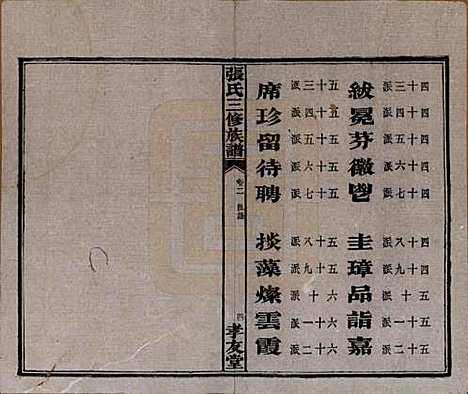 紱 四十三派
冕 四十四派
芬 四十五派
徽 四十六派
鬯 四十七派
圭 四十八派
璋 四十九派
品 五十派
詣 五十一派
嘉 五十二派
席 五十三派
珍 五十四派
留 五十五派
待 五十六派
聘 五十七派
掞 五十八派
藻 五十九派
燦 六十派
雲 六十一派
霞 六十二派
張氏三修族譜
卷二
孝友堂